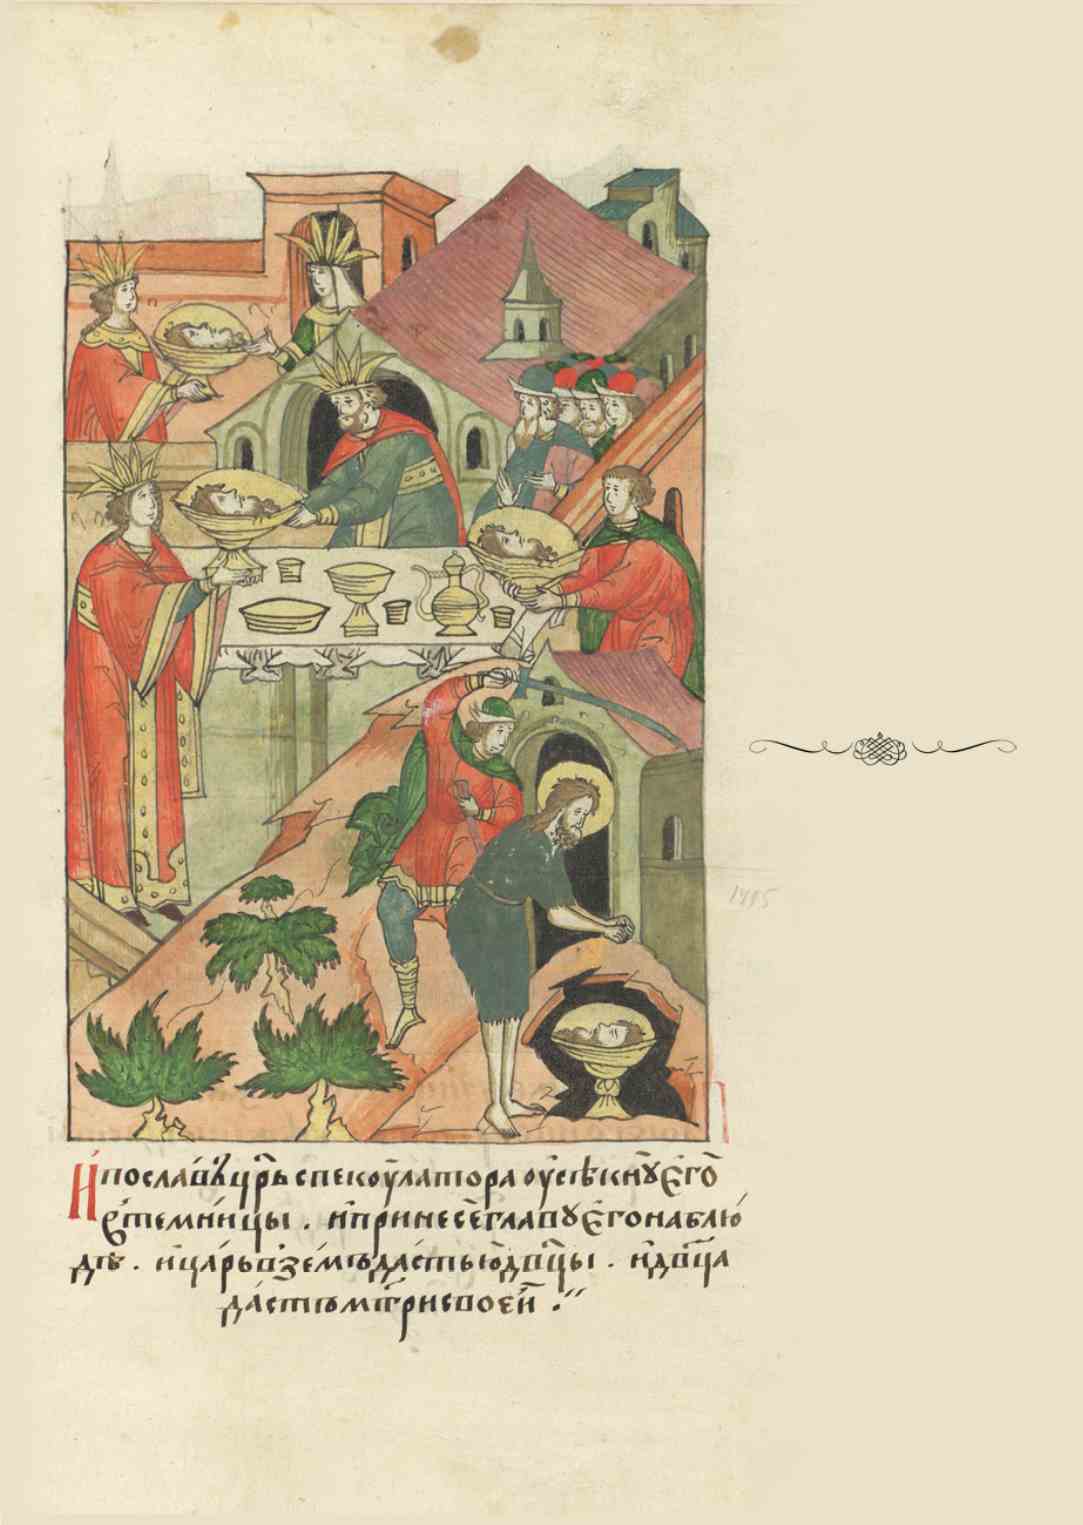 И҆посла́въцр҃ьспекоу́латора оу҆сѣ́кнꙋ є҆го̀
в̾темни́цы . и҆принесе́ главꙋ̀ є҆го наблю́
дѣ . и҆ца́рьвзе́мъда́стью҆дв҃цы . и҆дв҃ца
да́стъмт҃рисвое́й .
1485